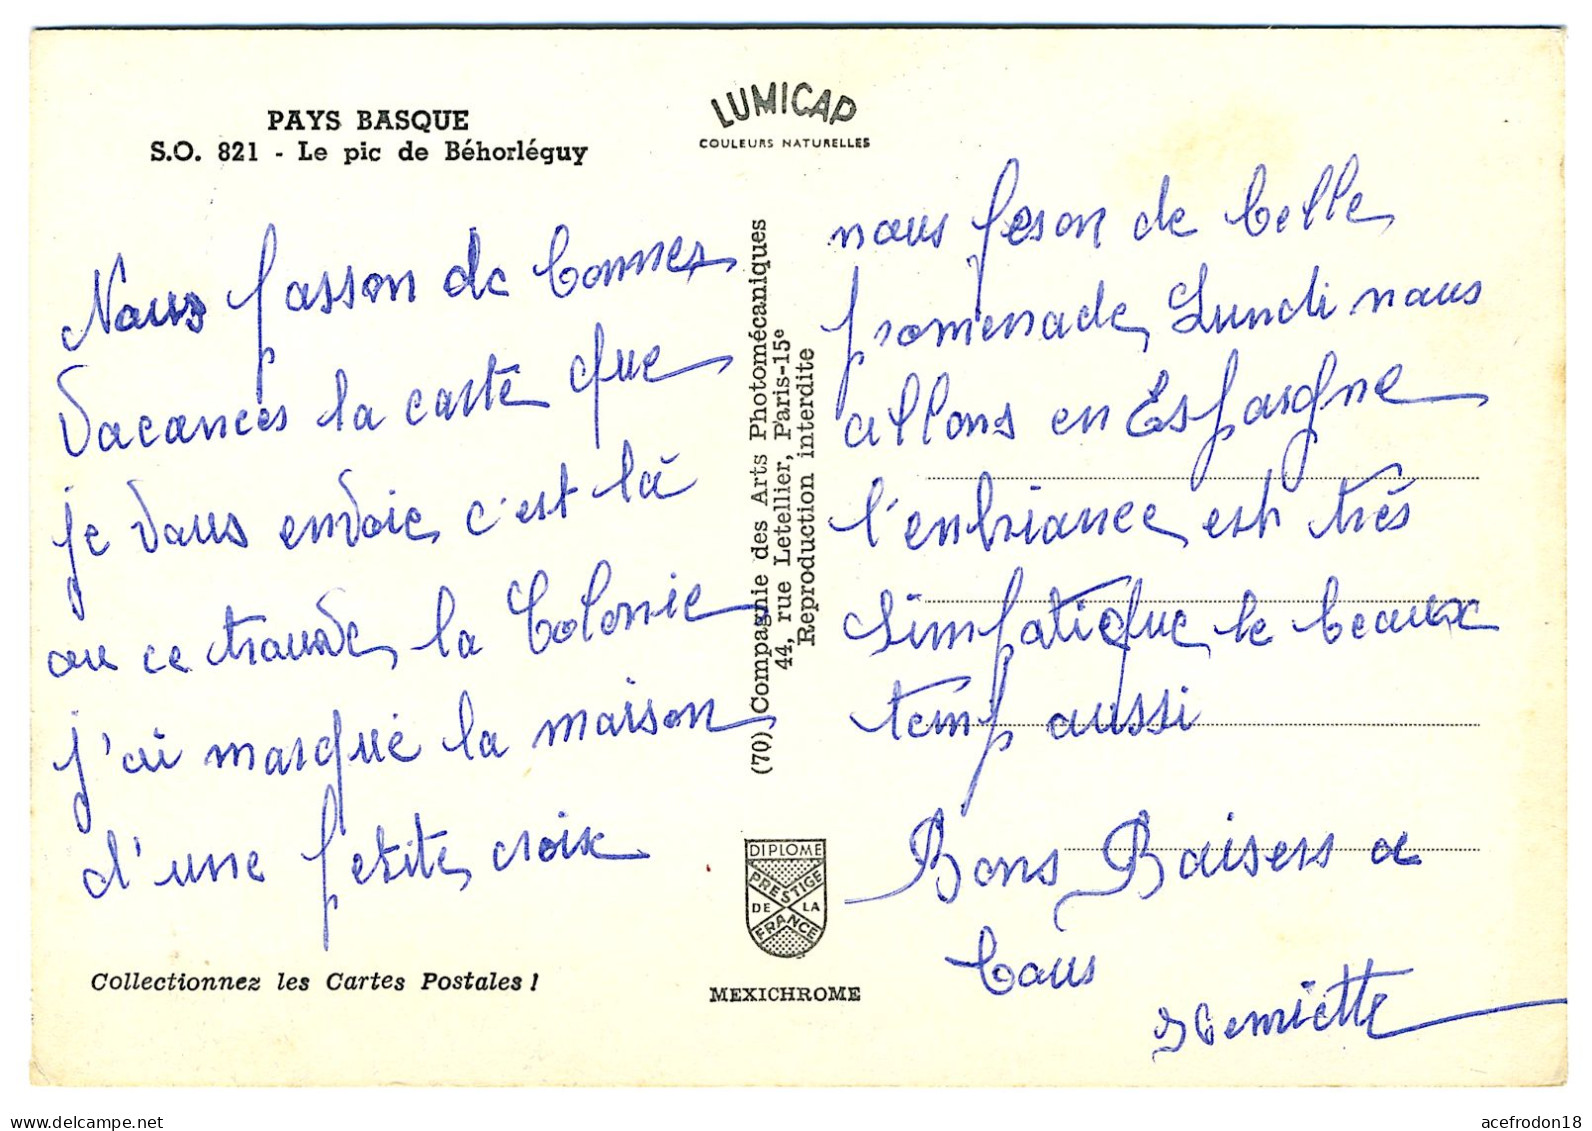 PAYS BASQUE
S.O. 821 - Le pic de Béhorléguy
LUMICAP
COULEURS NATURELLES
Nous passon de bonnes
vacances la carte que
je vous envoie c'est là
ou ce trouve la Colonie
j'ai marqué la maison
d'une petite croix
Collectionnez les Cartes Postales !
(70) Compagnie des Arts Photomécaniques
44, rue Letellier, Paris-15e
Reproduction interdite
DIPLOME
PRESTIGE
DE LA
FRANCE
MEXICHROME
nous feson de belle
promenade Lundi nous
allons en Espargne
l'enbiance est très
simpatique le beaux
temp aussi
Bons Baisers a
tous
Henriette
acefrodon18